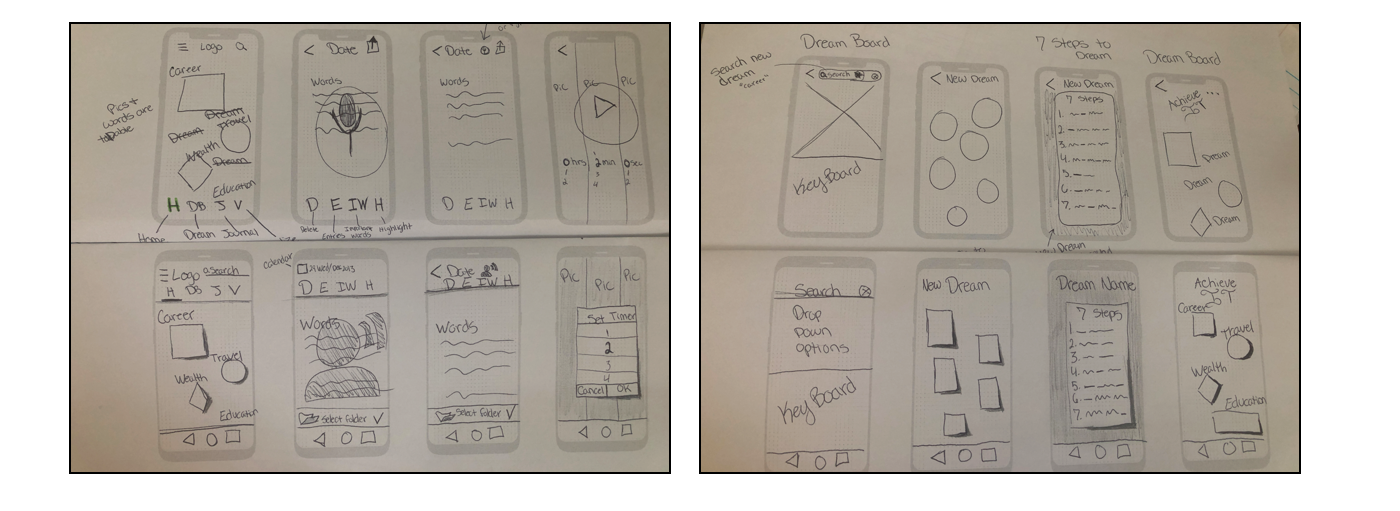 Logo
Career
Pics+
words are
Dream
Dream
Travel
Wealth
Dream
Education
H DB J V
Home
Dream
Journal
< Date
Words
D E IW H
Delete
Entries
words
Highlight
< Date
Words
D E IW H
<
Pic
Pic
Pic
0 hrs 2 min 0 sec
1
1
1
2
4
2
Logo search
H DB J V
Career
Travel
Wealth
Education
Calendar
D E IW H
Words
Select Folder
< Date
D E IW H
Words
Select Folder
Pic
Pic
Pic
Set Timer
1
2
3
4
Cancel OK
Dream Board
Search new
dream
"career"
< search
KeyBoard
< New Dream
7 Steps to
Dream
< New Dream
7 Steps
1.
2.
3.
4.
5.
6.
7.
Dream Board
<
Achieve ...
Dream
Dream
Dream
Dream
Search
Drop
Down
options
KeyBoard
New Dream
Dream Name
7 Steps
1
2.
3.
4.
5.
6.
7.
Achieve
Career
Travel
Wealth
Education